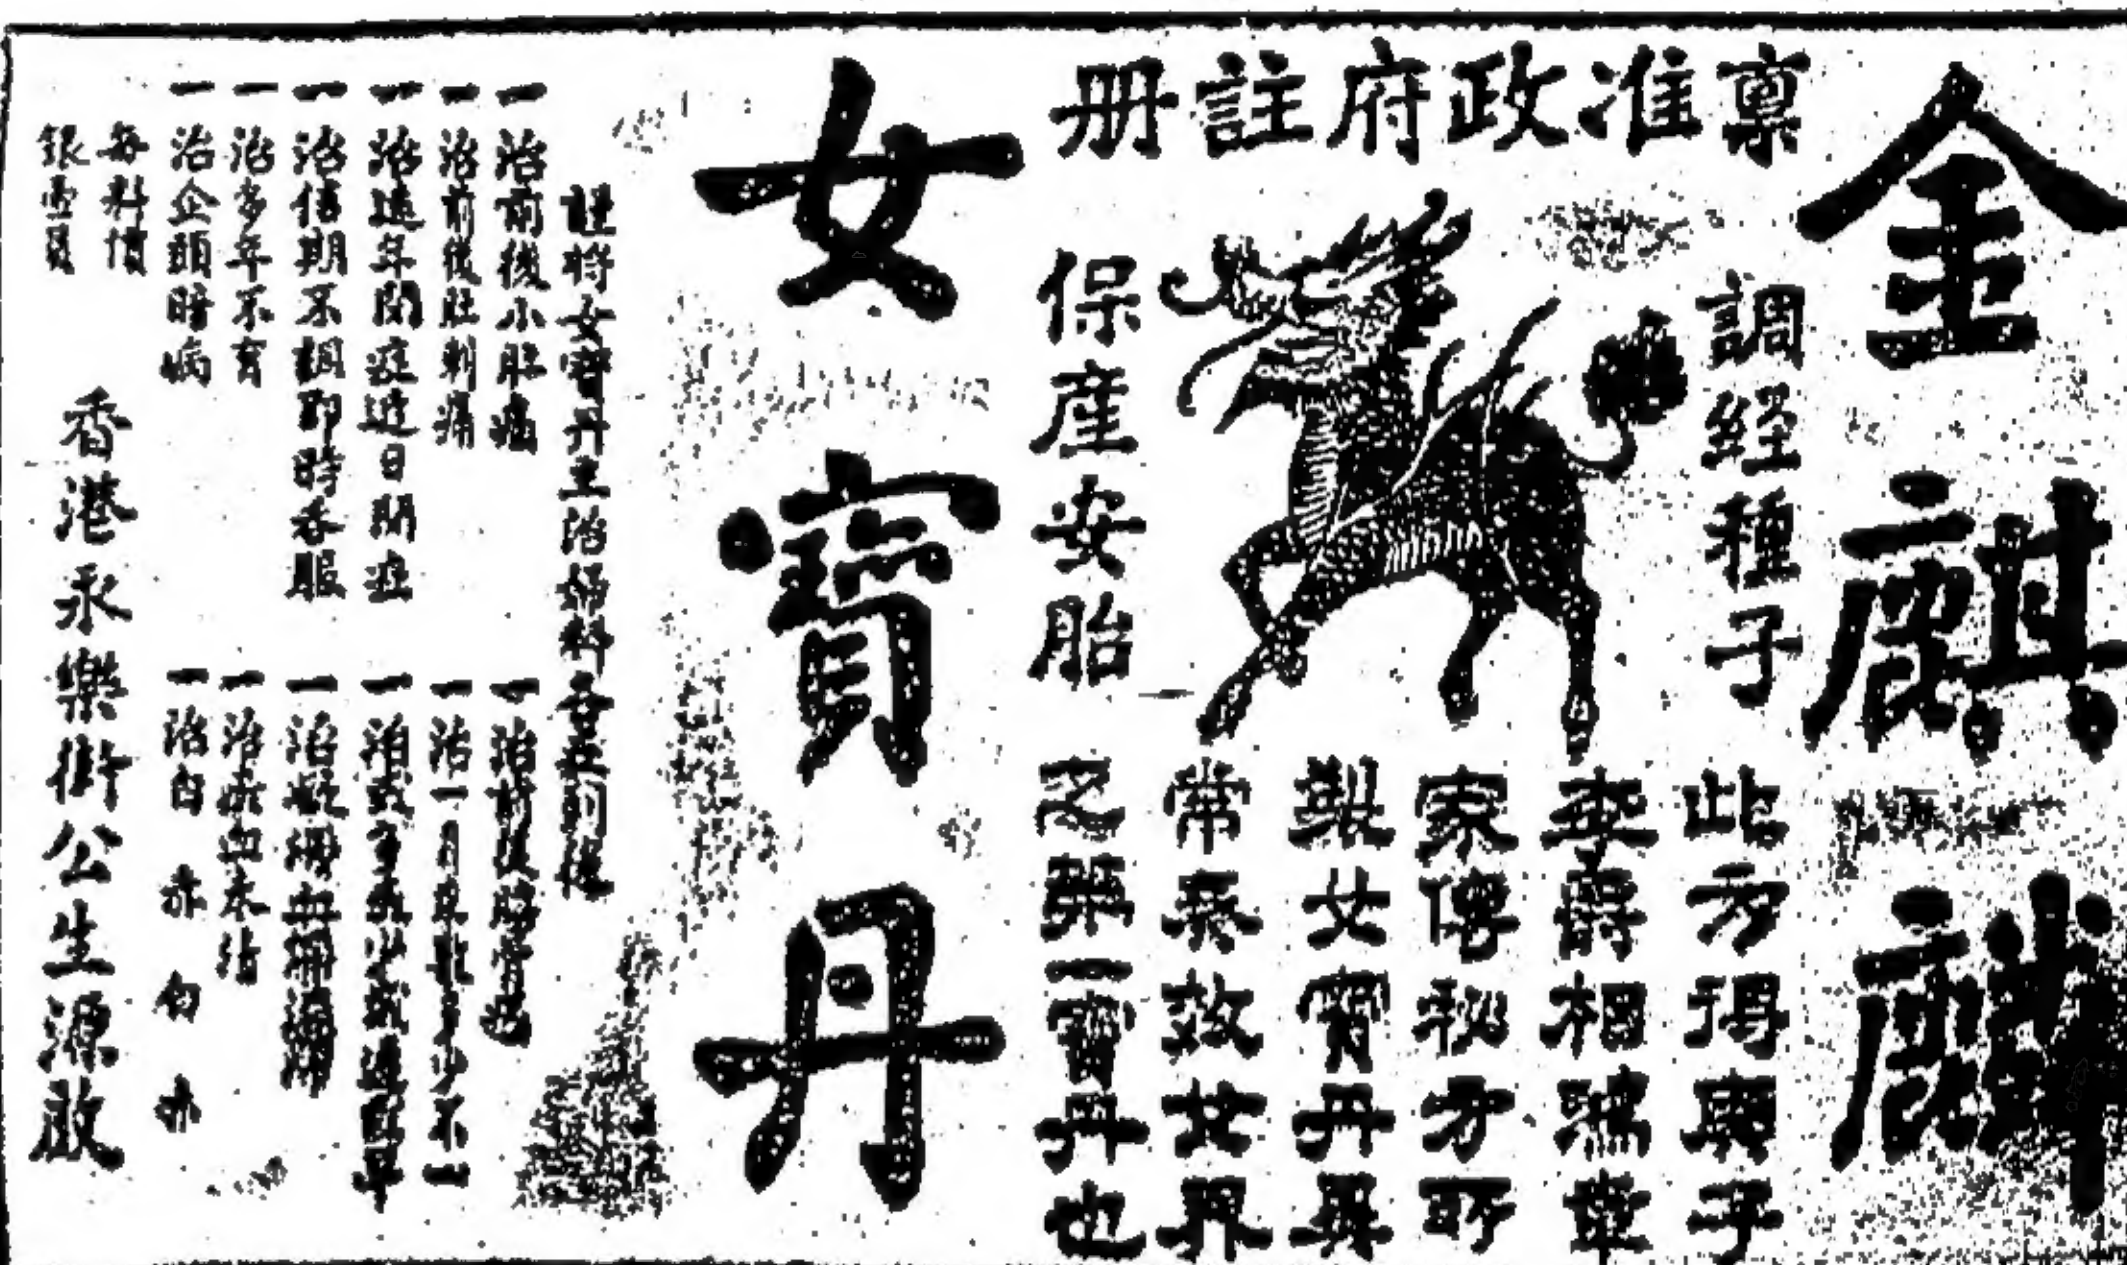 金麒麟
稟准政府註冊
調經種子
保產安胎
此方得與子
李爵相鴻章
家傳秘方所
製女寶丹異
常奏效女界
之第一寶丹也
女寶丹
謹將女寶丹主治婦科各症列後
一治前後小肚痛
一治前後肚刺痛
一治遠年閉症近日閉症
一治信期不調即時吞服
一治多年不育
一治企頭暗病
一治前後腰骨痛
一治一月來數多少不一
一治或多或少或遲或早
一治
一治血不結
一治白赤白赤
每料價
銀壹員
香港永樂街公生源啟